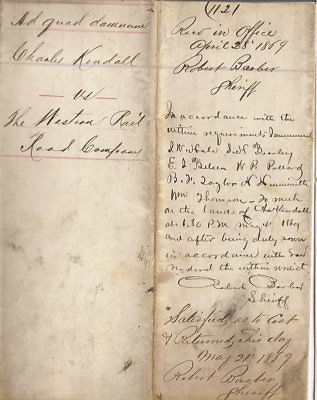 Ad quad damnum
Charles Kendall
vs
The Western Rail
Road Company
(1121
Recd in Office
April 28th 1869
Robert Barber
Sheriff
In accordance with the
within requirements I summoned
J. W. Hale
E. J. W. P. Pollard
B. F. Taylor H
Wm Thomson — To meet
on the land of Chs Kendall
at 1.30 P.M. May 4th 1869
and after being duly sworn
in accordance with law
rendered the within verdict
Robert Barber
Sheriff
Satisfied as to Cost
& Returned This day
May 21st 1869
Robert Barber
Sheriff